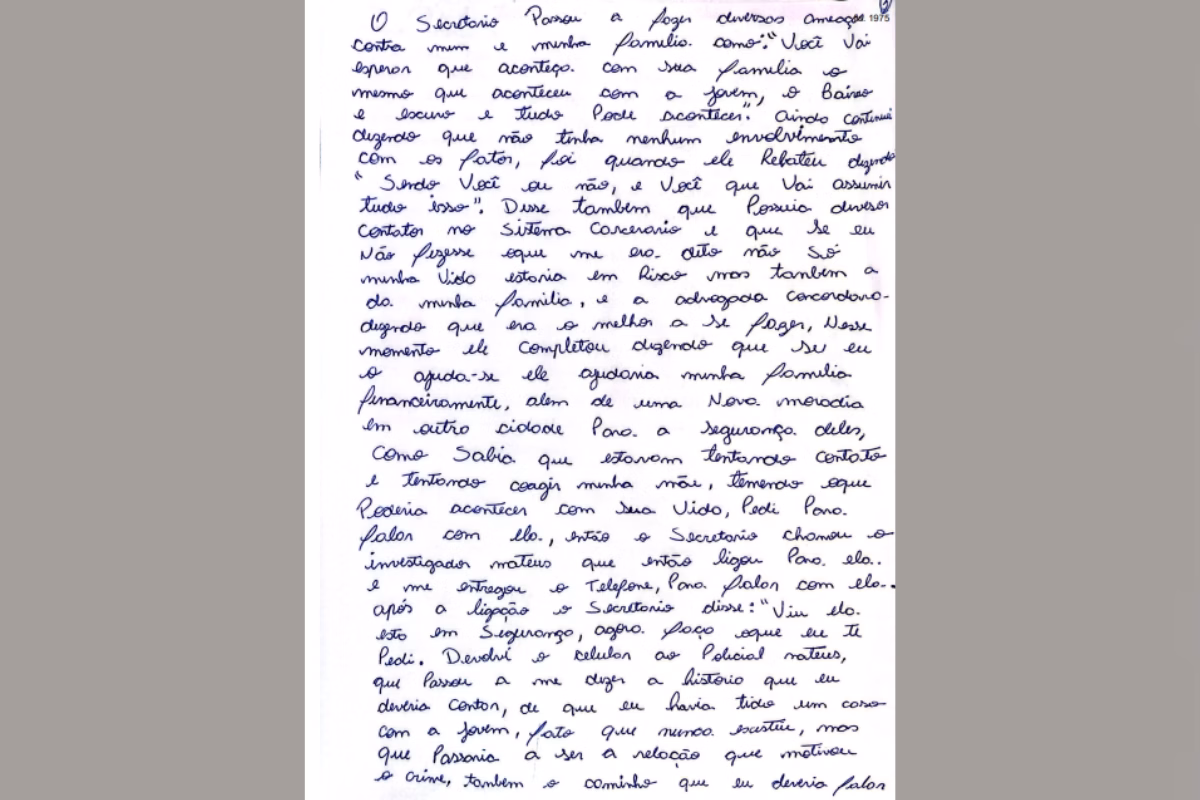 O Secretario Passou a fazer diversas ameaças
1975
contra mim e minha familia. como: "Você Vai
esperar que aconteça. com sua familia o
mesmo que aconteceu com a jovem, o Bairro
e escuro e tudo Pode acontecer". ainda continuei
dizendo que não tinha nenhum envolvimento
com os fatos, foi quando ele Rebateu dizendo
"Sendo Você ou não, e Você que Vai assumir
tudo isso". Disse também que Possuia diversos
contatos no Sistema Carcerario e que se eu
Não fizesse oque me era. dito não Só
minha Vida estaria em Risco mas tanbem a
da. minha familia, e a advogada concordava-
dizendo que era o melhor a se fazer, Nesse
momento ele completou dizendo que se eu
o ajuda-se ele ajudaria minha familia
financeiramente, alem de uma Nova moradia
em outra cidade Para. a segurança. deles,
como Sabia que estavam tentando contato
e tentando coagir minha mãe, temendo oque
Poderia acontecer com sua Vida, Pedi Para.
falar com ela., então o Secretario chamou o
investigador mateus que então ligou Para. ela..
e me entregou o Telefone, Para. falar com ela..
após a ligação o Secretario disse: "Viu ela.
esta em Segurança, agora. faça oque eu te
Pedi. Devolvi o celular ao Policial mateus,
que Passou a me dizer a historia que eu
deveria Contar, de que eu havia tido um caso
com a jovem, fato que nunca. existiu, mas
que Passaria a ser a relação que motivou
o crime, tanbem o caminho que eu deveria falar